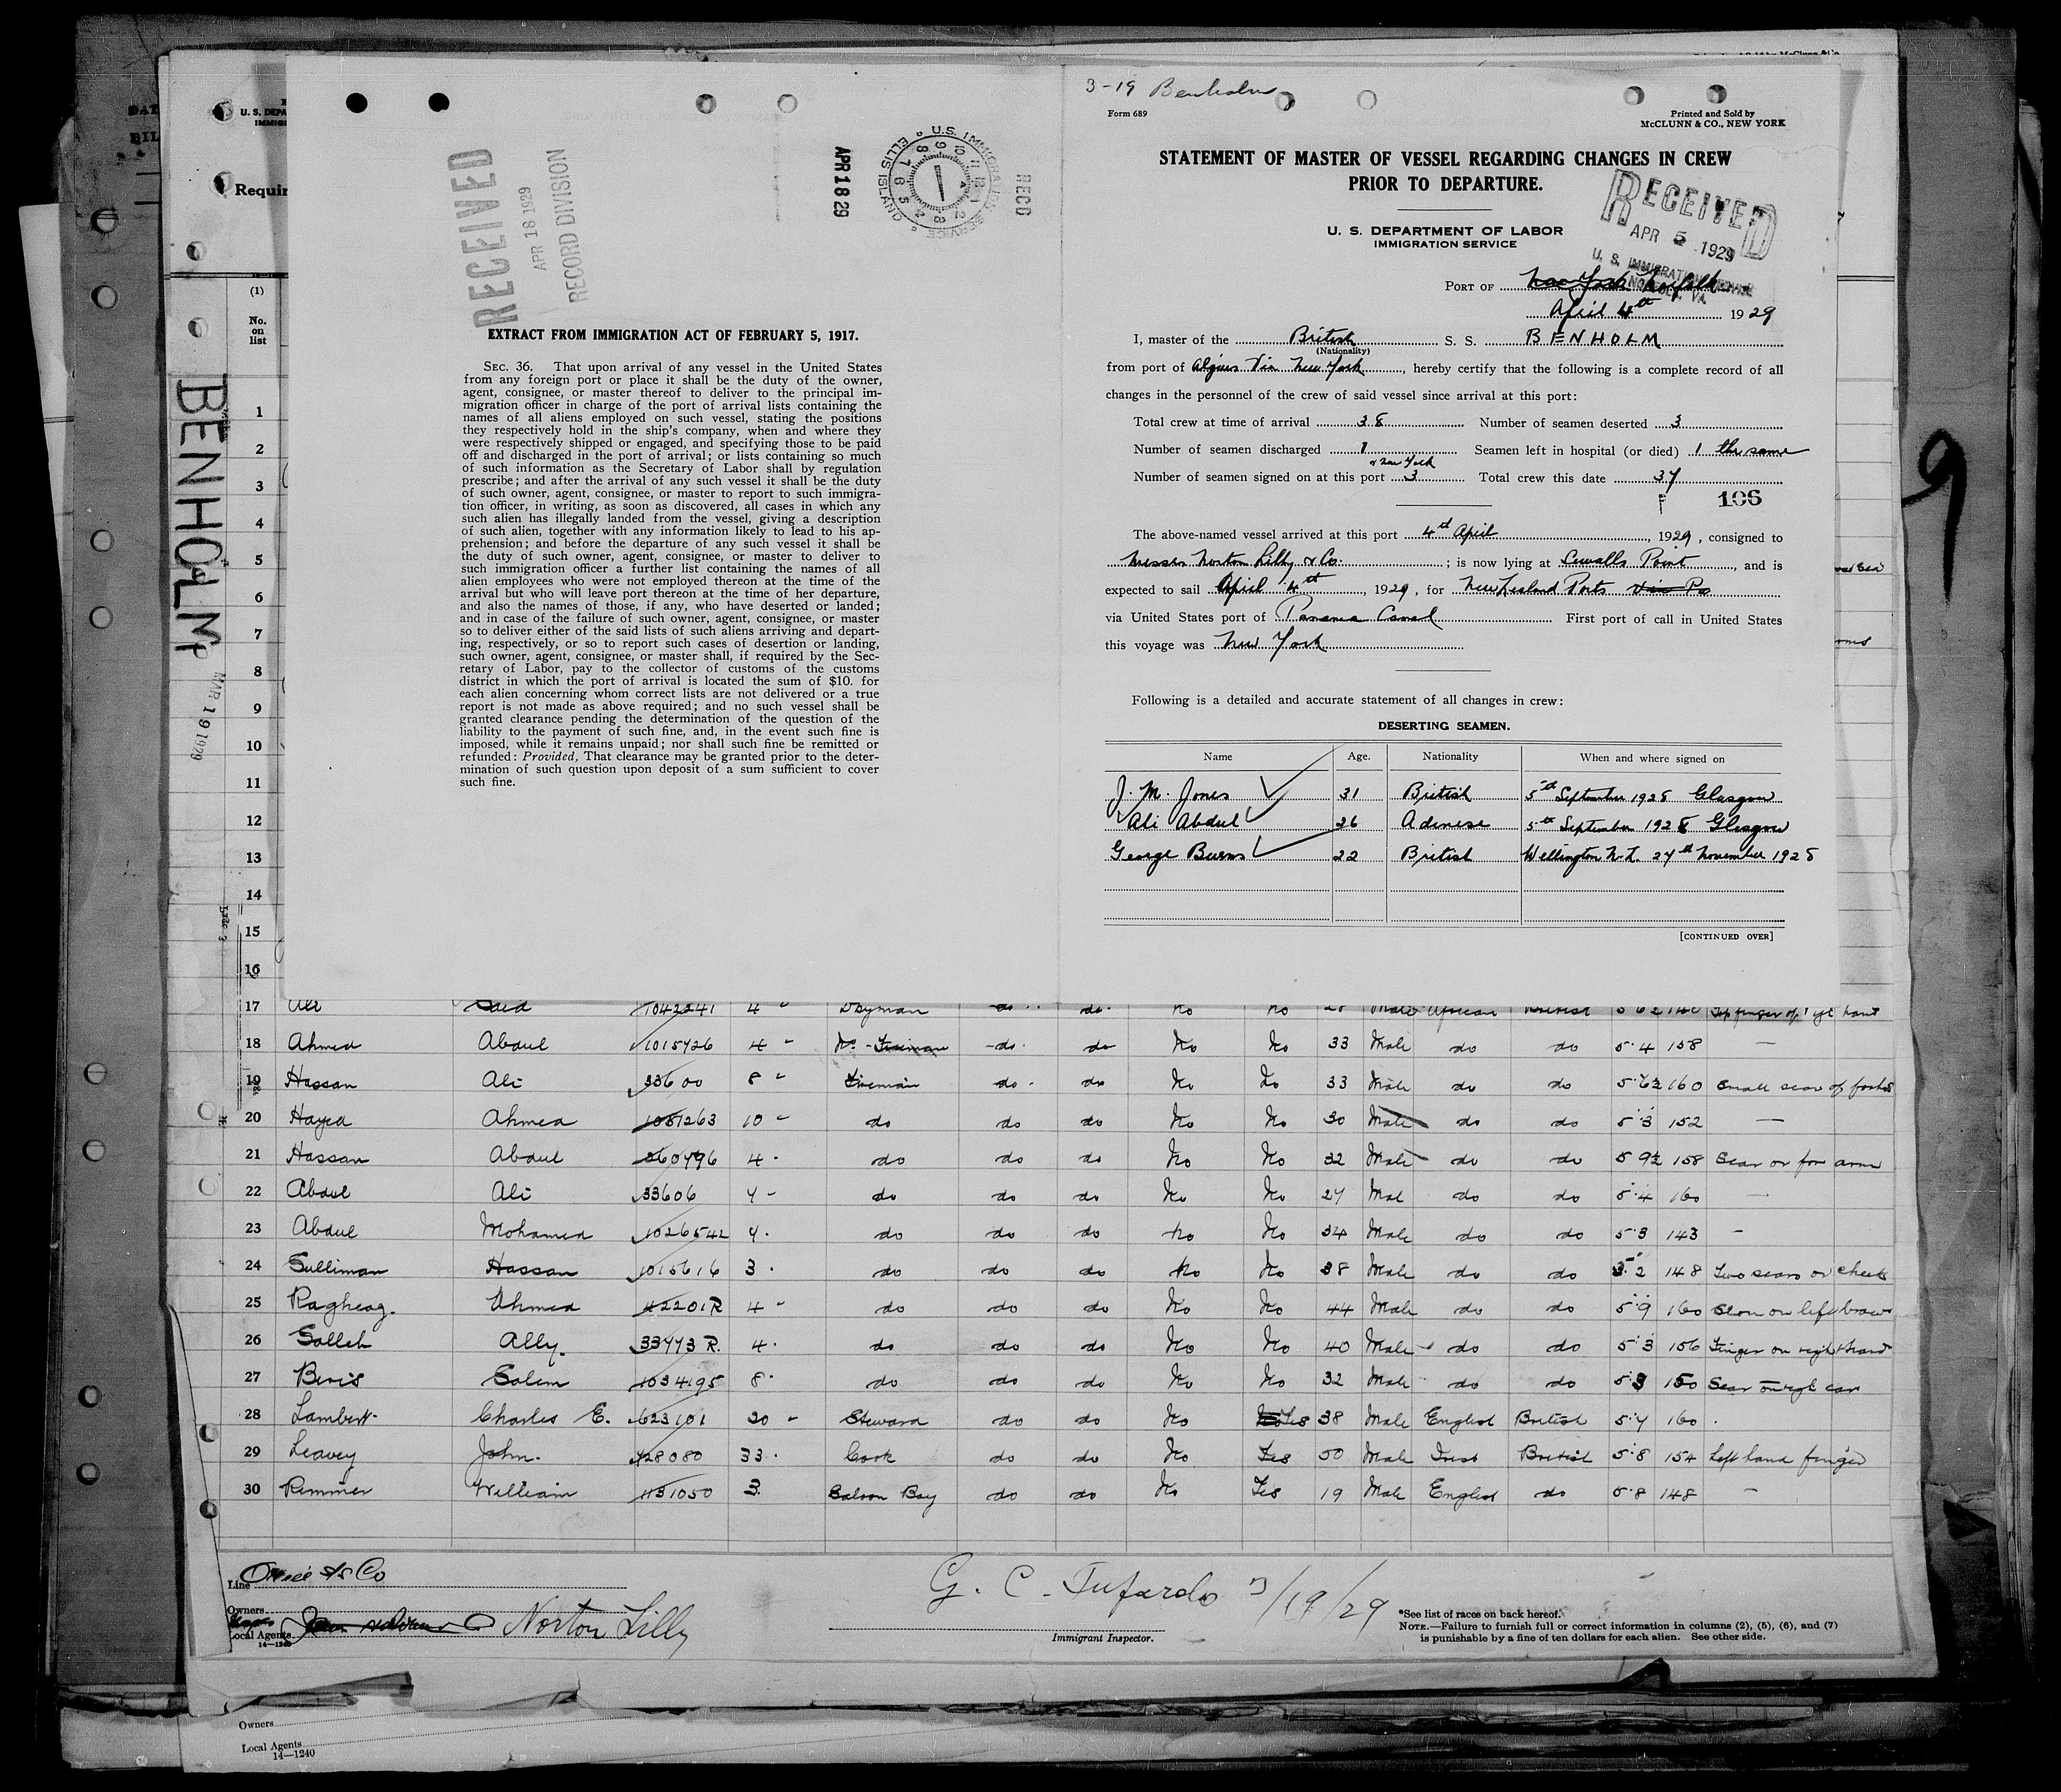 RECEIVED
APR 18 1929
RECORD DIVISION
APR 18 29
U.S. IMMIGRATION SERVICE
ELLIS ISLAND
RECD
EXTRACT FROM IMMIGRATION ACT OF FEBRUARY 5, 1917.
SEC. 36. That upon arrival of any vessel in the United States
from any foreign port or place it shall be the duty of the owner,
agent, consignee, or master thereof to deliver to the principal im-
migration officer in charge of the port of arrival lists containing the
names of all aliens employed on such vessel, stating the positions
they respectively hold in the ship's company, when and where they
were respectively shipped or engaged, and specifying those to be paid
off and discharged in the port of arrival; or lists containing so much
of such information as the Secretary of Labor shall by regulation
prescribe; and after the arrival of any such vessel it shall be the duty
of such owner, agent, consignee, or master to report to such immigra-
tion officer, in writing, as soon as discovered, all cases in which any
such alien has illegally landed from the vessel, giving a description
of such alien, together with any information likely to lead to his ap-
prehension; and before the departure of any such vessel it shall be
the duty of such owner, agent, consignee, or master to deliver to
such immigration officer a further list containing the names of all
alien employees who were not employed thereon at the time of the
arrival but who will leave port thereon at the time of her departure,
and also the names of those, if any, who have deserted or landed;
and in case of the failure of such owner, agent, consignee, or master
so to deliver either of the said lists of such aliens arriving and depart-
ing, respectively, or so to report such cases of desertion or landing,
such owner, agent, consignee, or master shall, if required by the Sec-
retary of Labor, pay to the collector of customs of the customs
district in which the port of arrival is located the sum of $10. for
each alien concerning whom correct lists are not delivered or a true
report is not made as above required; and no such vessel shall be
granted clearance pending the determination of the question of the
liability to the payment of such fine, and, in the event such fine is
imposed, while it remains unpaid; nor shall such fine be remitted or
refunded: Provided, That clearance may be granted prior to the deter-
mination of such question upon deposit of a sum sufficient to cover
such fine.
3-19 Benholm
Form 689
Printed and Sold by
McCLUNN & CO., NEW YORK
STATEMENT OF MASTER OF VESSEL REGARDING CHANGES IN CREW
PRIOR TO DEPARTURE.
U. S. DEPARTMENT OF LABOR
IMMIGRATION SERVICE
RECEIVED
APR 5 1929
U. S. IMMIGRATION SERVICE
NORFOLK, VA
PORT OF New York Norfolk
April 4th 1929
I, master of the British S. S. BENHOLM
(Nationality)
from port of Algiers Via New York, hereby certify that the following is a complete record of all
changes in the personnel of the crew of said vessel since arrival at this port:
Total crew at time of arrival 38 Number of seamen deserted 3
Number of seamen discharged 1 Seamen left in hospital (or died) 1 the same
& New York
Number of seamen signed on at this port 3 Total crew this date 37
F 106
The above-named vessel arrived at this port 4th April, 1929, consigned to
Messrs Norton Lilly & Co. ; is now lying at Sewalls Point, and is
expected to sail April 4th, 1929, for New Zealand Ports Via Pa
via United States port of Panama Canal First port of call in United States
this voyage was New York
Following is a detailed and accurate statement of all changes in crew:
DESERTING SEAMEN.
Name Age. Nationality When and where signed on
J. M. Jones 31 British 5th September 1928 Glasgow
Ali Abdul 26 Adenese 5th September 1928 Glasgow
George Burns 22 British Wellington N.Z. 27th November 1928
[CONTINUED OVER]
U. S. DEPA
IMMIG
Requir
(1)
No. on list
BENHOLM
MAR 19 1929
9
1
2
3
4
5
6
7
8
9
10
11
12
13
14
15
16
17 Ali Said 1042241 4 Dkyman do do No No 28 Male African British
18 Ahmed Abdul 1015726 4 Fireman do do No No 33 Male do do 5.4 158 —
19 Hassan Ali 33600 8 Fireman do do No No 33 Male do do 5.6½ 160 Small scar of
20 Hayed Ahmed 1051263 10 do do do No No 30 Male do do 5.3 152 —
21 Hassan Abdul 360796 4 do do do No No 32 Male do do 5 9½ 158 Scar on for arm
22 Abdul Ali 33606 4 do do do No No 27 Mal do do 5.4 160 —
23 Abdul Mohamed 1026542 4 do do do No No 34 Male do do 5.3 143 —
24 Sulliman Hassan 1015616 3 do do do No No 38 Male do do 5.2 148 Two scars on cheek
25 Ragheag. Ahmed 42201R 4 do do do No No 44 Male do do 5.9 160 Scar on left brow
26 Salleh Ally. 33473 R. 4 do do do No No 40 Male do do 5.3 156 Finger on right hand
27 Beris Salem 1034195 8 do do do No No 32 Male do do 5.3 150 Scar on rigt ear
28 Lambert Charles E. 623101 20 Steward do do No Yes 38 Male English British 5.7 160
29 Leavey John. 728080 33 Cook do do No Yes 50 Male Irish British 5.8 154 Left hand finger
30 Rimmer William 1131050 3 Saloon Boy do do No Yes 19 Male English do 5.8 148 —
Line
Owners
Local Agents Norton Lilly
14—1240
G. C. Tufardo 3/19/29
Immigrant Inspector.
*See list of races on back hereof.
NOTE.—Failure to furnish full or correct information in columns (2), (5), (6), and (7)
is punishable by a fine of ten dollars for each alien. See other side.
Owners
Local Agents
14—1240